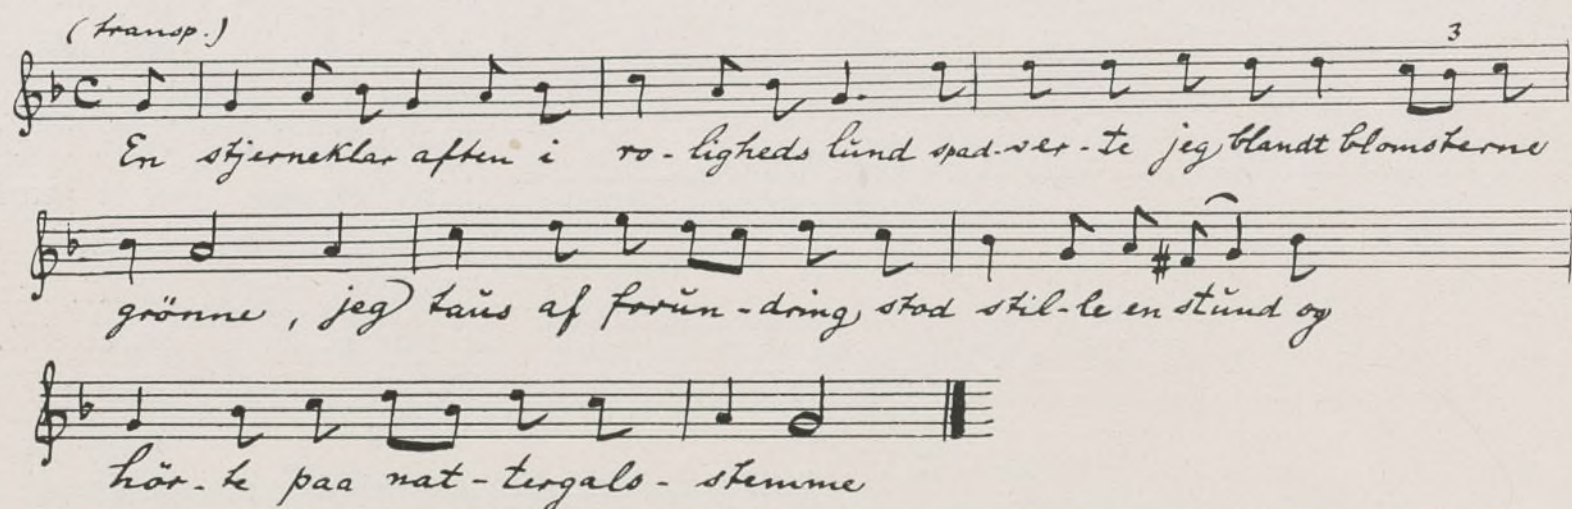 (transp.)
3
En stjerneklar aften i ro-ligheds lŭnd spad-ser-te jeg blandt blomsterne
grönne, jeg taŭs af forŭn-dring stod stil-le en stŭnd og
hör-te paa nat-tergals-stemme